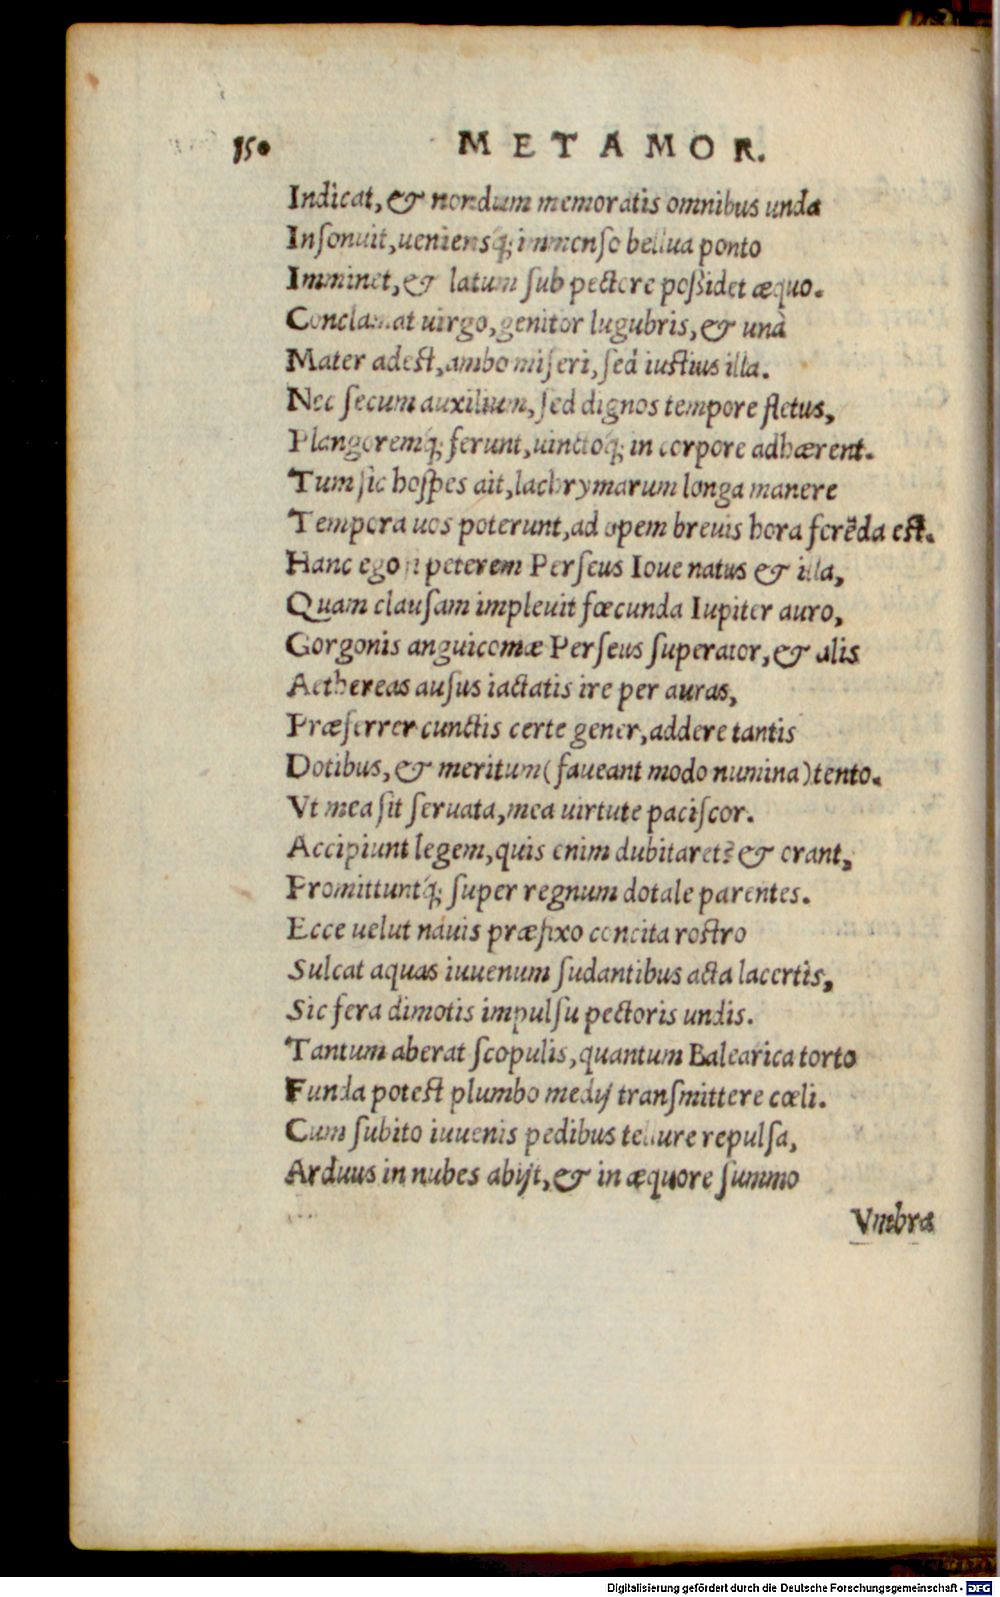 150 METAMOR.
Indicat, & nondum memoratis omnibus unda
Insonuit, ueniensq́; immenso bellua ponto
Imminet, & latum sub pectore possidet æquo.
Conclamat uirgo, genitor lugubris, & unà
Mater adest, ambo miseri, sed iustius illa.
Nec secum auxilium, sed dignos tempore fletus,
Plangoremq́; ferunt, uinctoq́; in corpore adhærent.
Tum sic hospes ait, lachrymarum longa manere
Tempora uos poterunt, ad opem breuis hora ferēda est.
Hanc ego si peterem Perseus Ioue natus & illa,
Quam clausam impleuit fœcunda Iupiter auro,
Gorgonis anguicomæ Perseus superator, & alis
Aethereas ausus iactatis ire per auras,
Præferrer cunctis certe gener, addere tantis
Dotibus, & meritum (faueant modo numina) tento.
Vt mea sit seruata, mea uirtute paciscor.
Accipiunt legem, quis enim dubitaret? & orant,
Promittuntq́; super regnum dotale parentes.
Ecce uelut nauis præfixo concita rostro
Sulcat aquas iuuenum sudantibus acta lacertis,
Sic fera dimotis impulsu pectoris undis.
Tantum aberat scopulis, quantum Balearica torto
Funda potest plumbo medij transmittere cœli.
Cum subito iuuenis pedibus tellure repulsa,
Arduus in nubes abijt, & in æquore summo
Vmbra
Digitalisierung gefördert durch die Deutsche Forschungsgemeinschaft - DFG